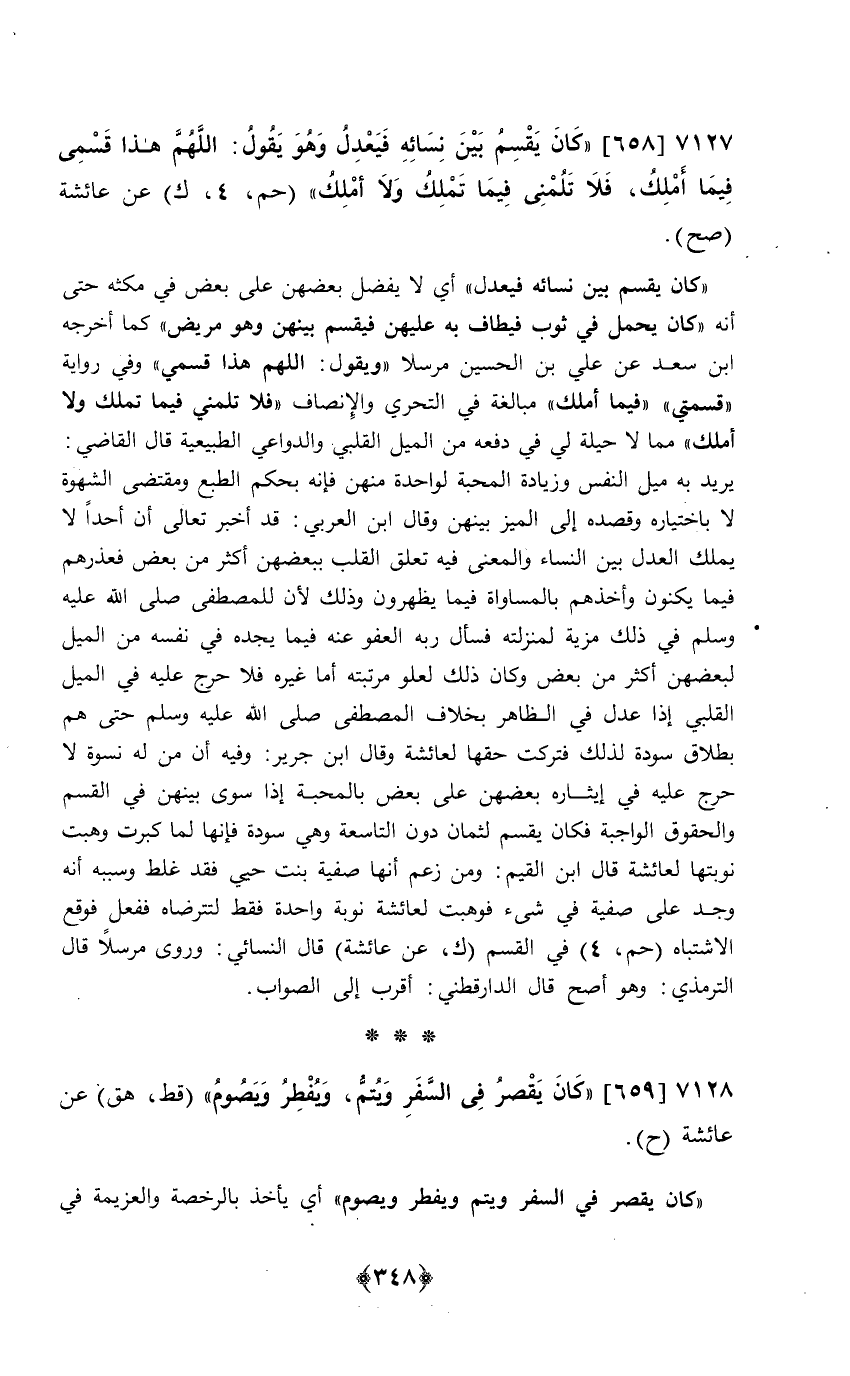 ٧١٢٧ [٦٥٨] «كَانَ يَقْسِمُ بَيْنَ نِسَائِهِ فَيَعْدِلُ وَهُوَ يَقُولُ: اللَّهُمَّ هـٰذا قَسْمِى
فِيمَا أَمْلِكُ، فَلَا تَلُمْنِى فِيمَا تَمْلِكُ وَلَا أمْلِكُ» (حم، ٤، ك) عن عائشة
(صح).
«كان يقسم بين نسائه فيعدل» أي لا يفضل بعضهن على بعض في مكثه حتى
أنه «كان يحمل في ثوب فيطاف به عليهن فيقسم بينهن وهو مريض» كما أخرجه
ابن سعد عن علي بن الحسين مرسلا «ويقول: اللهم هذا قسمي» وفي رواية
«قسمتي» «فيما أملك» مبالغة في التحري والإنصاف «فلا تلمني فيما تملك ولا
أملك» مما لا حيلة لي في دفعه من الميل القلبي والدواعي الطبيعية قال القاضي:
يريد به ميل النفس وزيادة المحبة لواحدة منهن فإنه بحكم الطبع ومقتضى الشهوة
لا باختياره وقصده إلى الميز بينهن وقال ابن العربي: قد أخبر تعالى أن أحداً لا
يملك العدل بين النساء والمعنى فيه تعلق القلب ببعضهن أكثر من بعض فعذرهم
فيما يكنون وأخذهم بالمساواة فيما يظهرون وذلك لأن للمصطفى صلى الله عليه
وسلم في ذلك مزية لمنزلته فسأل ربه العفو عنه فيما يجده في نفسه من الميل
لبعضهن أكثر من بعض وكان ذلك لعلو مرتبته أما غيره فلا حرج عليه في الميل
القلبي إذا عدل في الظاهر بخلاف المصطفى صلى الله عليه وسلم حتى هم
بطلاق سودة لذلك فتركت حقها لعائشة وقال ابن جرير: وفيه أن من له نسوة لا
حرج عليه في إيثاره بعضهن على بعض بالمحبة إذا سوى بينهن في القسم
والحقوق الواجبة فكان يقسم لثمان دون التاسعة وهي سودة فإنها لما كبرت وهبت
نوبتها لعائشة قال ابن القيم: ومن زعم أنها صفية بنت حيي فقد غلط وسببه أنه
وجد على صفية في شىء فوهبت لعائشة نوبة واحدة فقط لتترضاه ففعل فوقع
الاشتباه (حم، ٤) في القسم (ك، عن عائشة) قال النسائي: وروى مرسلاً قال
الترمذي: وهو أصح قال الدارقطني: أقرب إلى الصواب.
* * *
٧١٢٨ [٦٥٩] «كَانَ يَقْصرُ فِى السَّفَرِ وَيُتمُّ، وَيُفْطِرُ وَيَصُومُ» (قط، هق) عن
عائشة (ح).
«كان يقصر في السفر ويتم ويفطر ويصوم» أي يأخذ بالرخصة والعزيمة في
﴿٣٤٨﴾